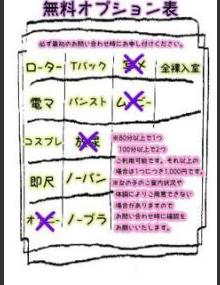 無料オプション表
必ず最初のお問い合わせ時にお申し付けください。
ローター Tバック 全裸入室
電マ パンスト
コスプレ
※80分以上で1つ
100分以上で2つ
ご利用可能です。それ以上の
場合は1つにつき1,000円です。
即尺 ノーパン
※女の子のご案内状況や
体調によりご用意できない
場合がありますので
お問い合わせ時に確認を
お願いいたします。
ノーブラ